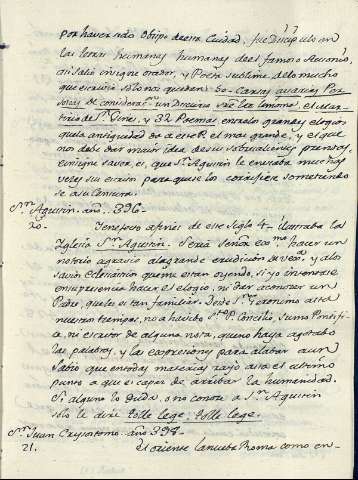 por haver sido Obispo de esta Ciudad, fue Discípulo en
las letras humanas humanas del famoso Ausonio,
en salió insigne orador, y Poeta sublime. de lo mucho
que escrivio solo nos quedan 50 Cartas a varias Per
sonas de consideraⁿ un Discurso sre la limosna, el Mar
tirio de Sⁿ Gines, y 32 Poemas entre los grandes elogios
que la antiguedad da a este P. el mas grande, y el que
nos debe dar maior idea de su sobresaliente, y
insigne saver es, que Sⁿ Agustin le enviaba muchas
vezes sus escritos para que los corrigiese sometiendo
se a su Censura.
Sⁿ Agustin. año. 396.
20. Tenesfo a fines de este Siglo 4. ilustraba la
Iglesia Sⁿ Agustin. Seria Señor exᵐᵒ hacer un
notorio agravio a la grande erudicion de vexᵃ y a los
savios Eclesiasticos que me estan oyendo, si yo intentase
en su presencia hacer el elogio, ni dar a conocer un
Padre, que les es tan familiar. Desde Sⁿ Geronimo asta
nuestros tiempos, no a havido Sᵗᵒ P. Concilio, Sumo Pontifi
ce, ni escritor de alguna nota, que no haya agotado
las palabras, y las expresiones para alabar a un
Sabio que en todas materias rayó asta el ultimo
punto a que es capaz de arribar la humanidad.
Si alguno lo duda, o no conoce a Sⁿ Agustin
solo le dire tolle lege, tolle lege.
Sⁿ Juan Crysostomo año 397.
21. El oriente la nueba Roma como en-